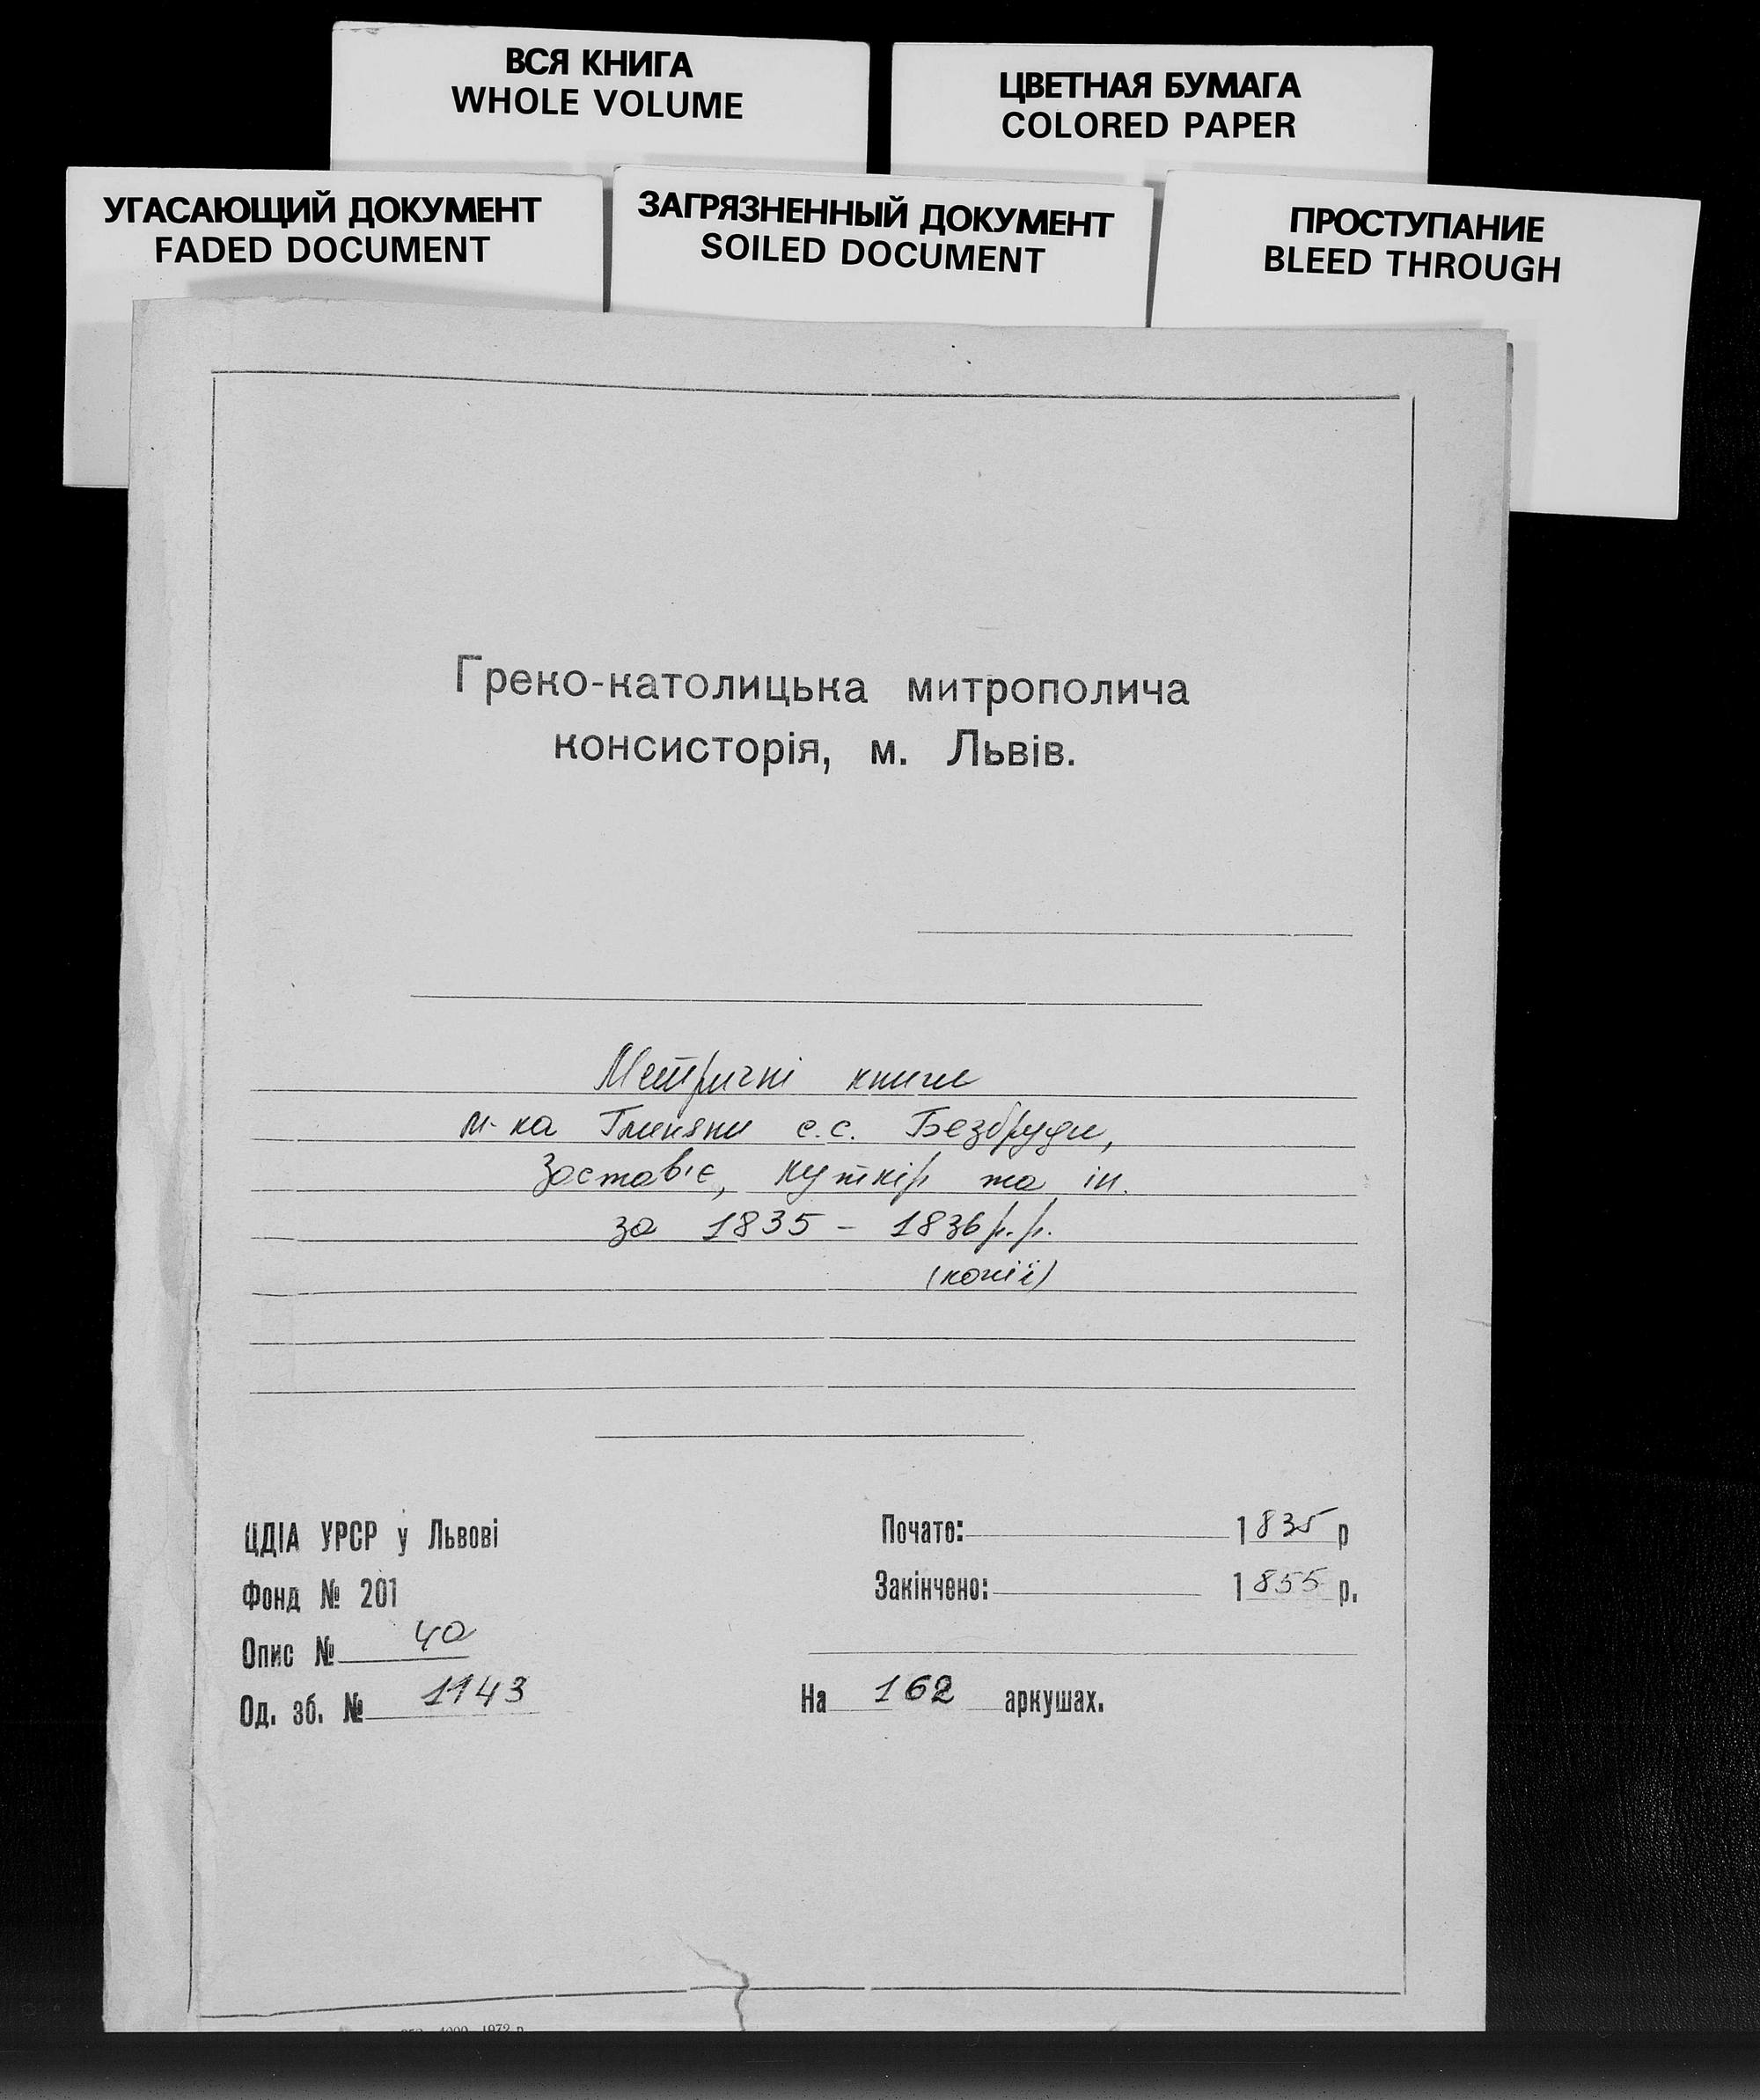 ВСЯ КНИГА
WHOLE VOLUME
ЦВЕТНАЯ БУМАГА
COLORED PAPER
УГАСАЮЩИЙ ДОКУМЕНТ
FADED DOCUMENT
ЗАГРЯЗНЕННЫЙ ДОКУМЕНТ
SOILED DOCUMENT
ПРОСТУПАНИЕ
BLEED THROUGH
Греко-католицька митрополича
консисторія, м. Львів.
Метричні книги
м-ка Глиняни с.с. Безбруди,
Застав'є, Куткір та ін.
за 1835 - 1836 р.р.
(копії)
ЦДІА УРСР у Львові
Фонд № 201
Опис № 4а
Од. зб. № 1143
Почато: 1835 р
Закінчено: 1855 р.
На 162 аркушах.
1972 р